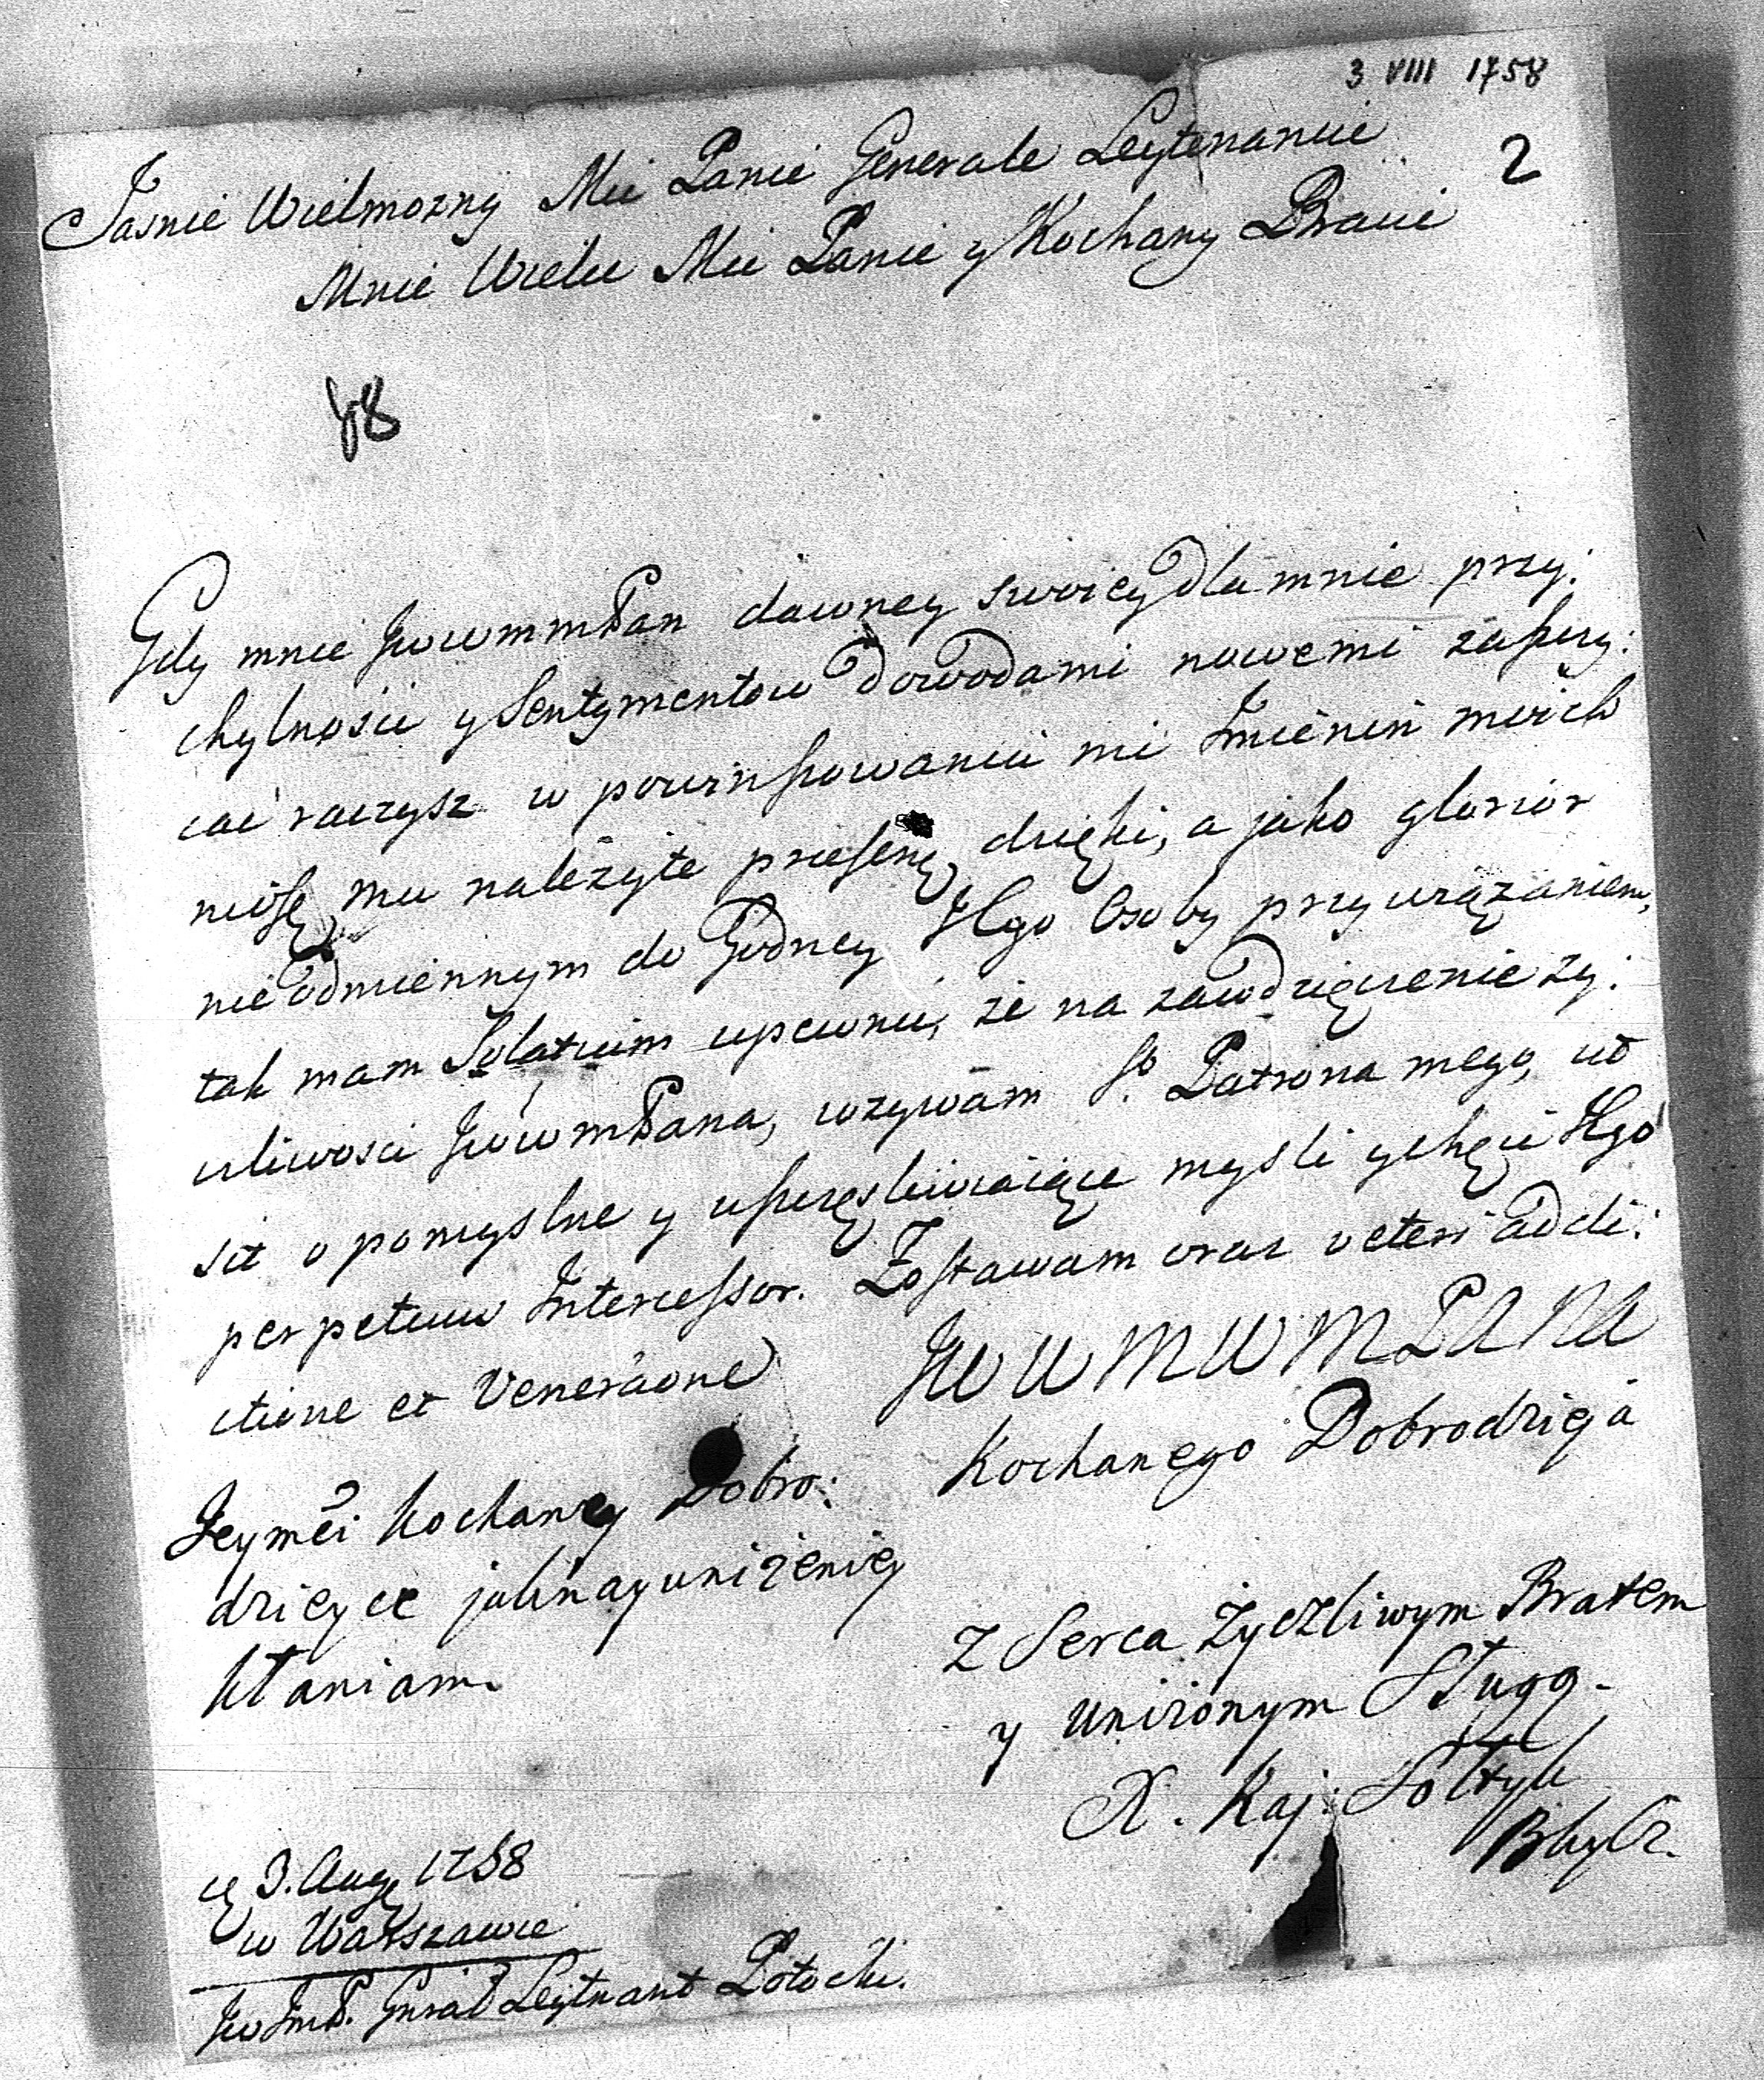 3 VIII 1758
2
Jasnie Wielmozny Mci Panie Generale Leytenancie
Mnie Wielce Mci Panie y Kochany Bracie
78
Gdy mnie JwwmmPan dawney swoiey dla mnie przy:
chylnosci y Sentymentow dowodami nowemi zaszczy:
cać raczysz w powinszowaniu mi Imienin moich
niosę mu należyte przesene dzięki, a jako glorior
nieodmiennym do Godney JEgo Osoby przywiązaniem,
tak mam Solatium upewnić, że na zawdzięczenie ży:
czliwosci JwwmPana, wzywam So. Patrona mego, ut
sit o pomyslne y uszczęsliwiaiące mysli y chęci JEgo
perpetuus Intercessor. Zostawam oraz veteri addi:
ctione et Veneraone
JW W M W M PANA
Kochanego Dobrodzieja
Jeymci kochaney Dobro:
dzieyce jaknayunizeniey
kłaniam.
z Serca Zyczliwym Bratem
y Unizonym Sługą.
X. Kaj. Sołtyk
BkyCz.
3. Aug 1758
w Warszawie
Jw JmP. Gnrał Leytnant Potocki.